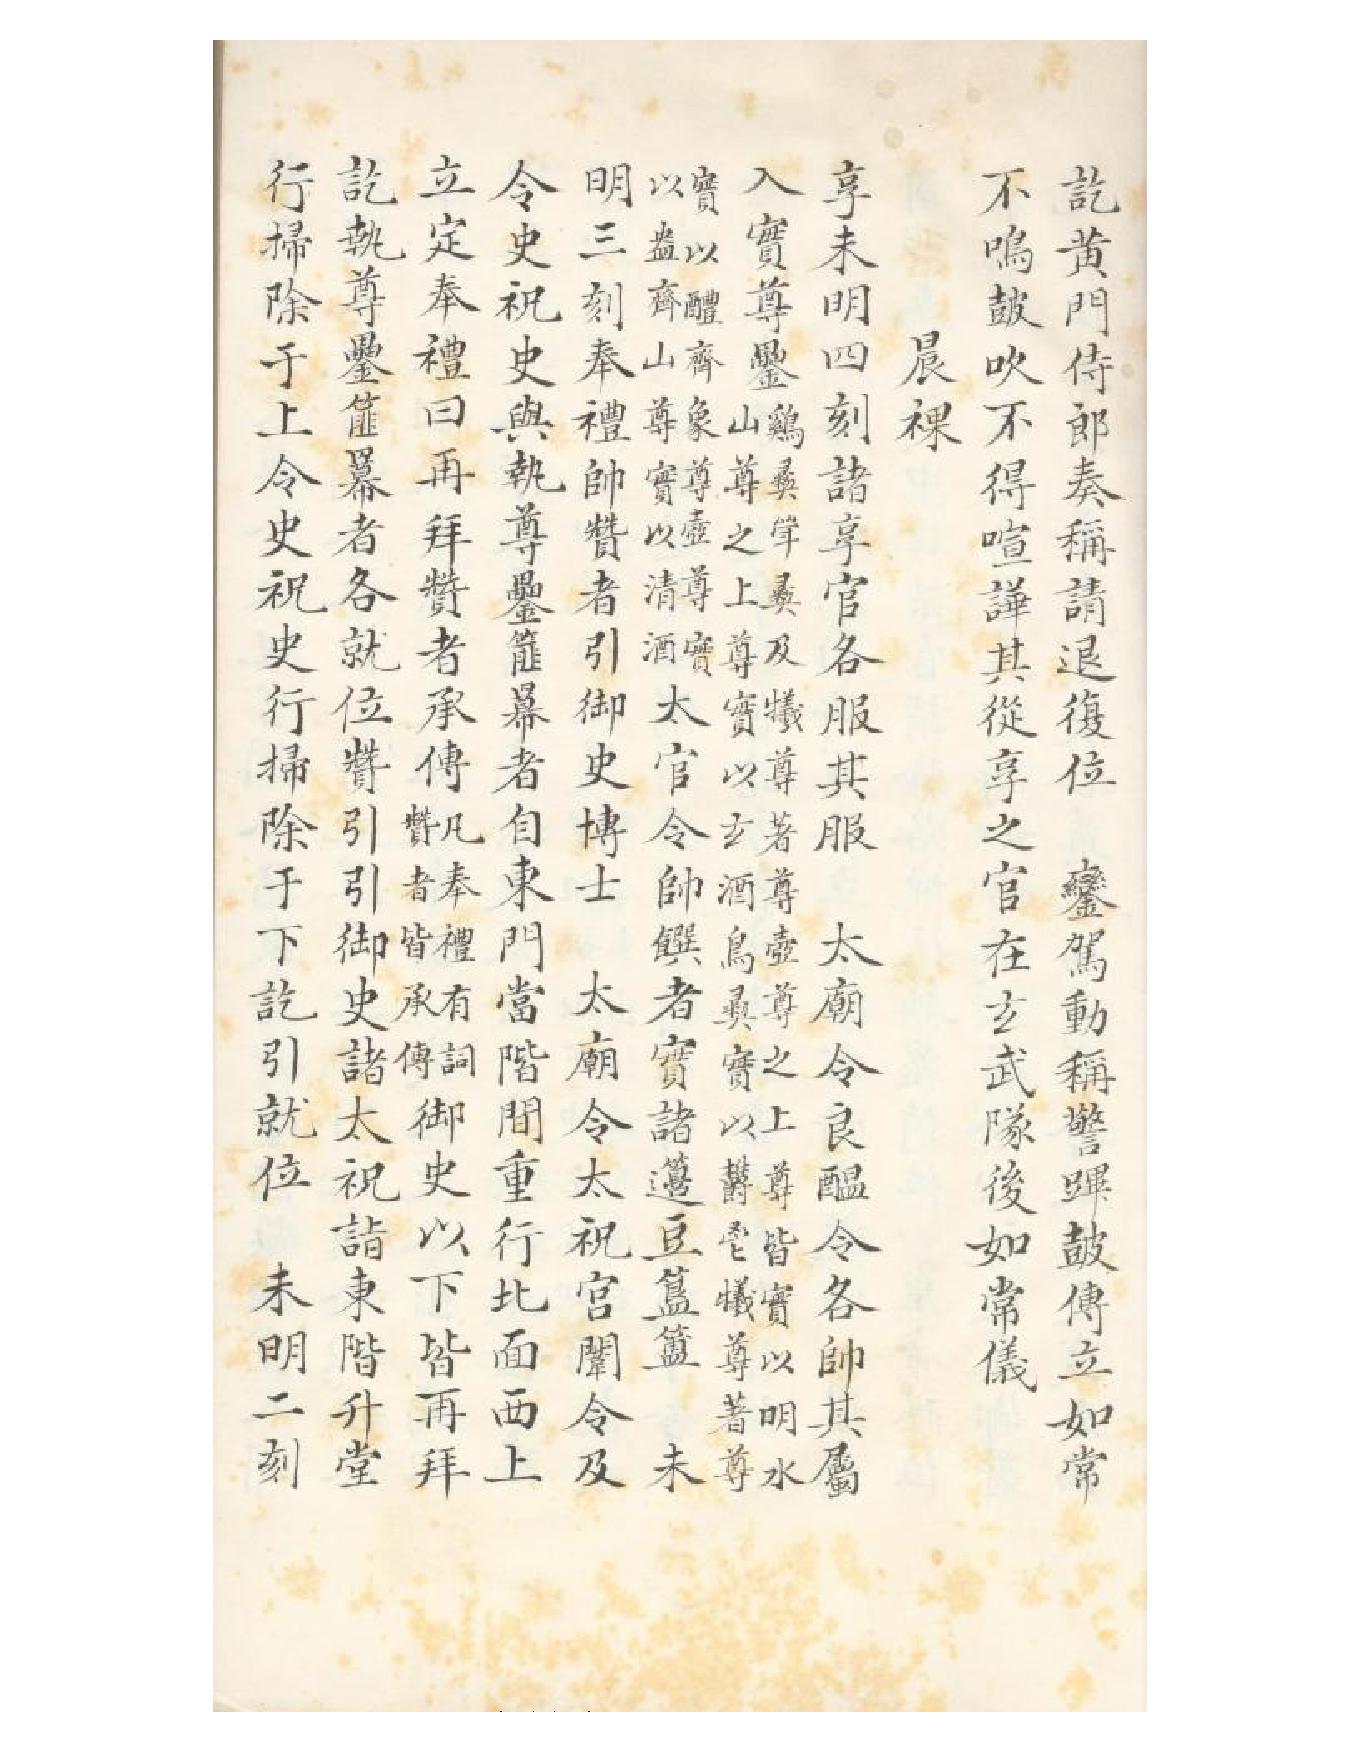 訖黃門侍郎奏稱請退復位　鑾駕動稱警蹕鼓傳立如常
不鳴鼓吹不得喧譁其從享之官在玄武隊後如常儀
晨祼
享未明四刻諸享官各服其服　太廟令良醞令各帥其屬
入實尊罍
鷄彝斝彝及犧尊著尊壺尊之上尊皆實以明水
山尊之上尊實以玄酒鳥彝實以鬱鬯犧尊著尊
實以醴齊象尊壺尊實
以盎齊山尊實以清酒
太官令帥饌者實諸籩豆簋簠　未
明三刻奉禮帥贊者引御史博士　太廟令太祝宫闈令及
令史祝史與執尊罍篚冪者自東門當階間重行北面西上
立定奉禮曰再拜贊者承傳
凡奉禮有詞
贊者皆承傳
御史以下皆再拜
訖執尊罍篚冪者各就位贊引引御史諸太祝詣東階升堂
行掃除于上令史祝史行掃除于下訖引就位　未明二刻